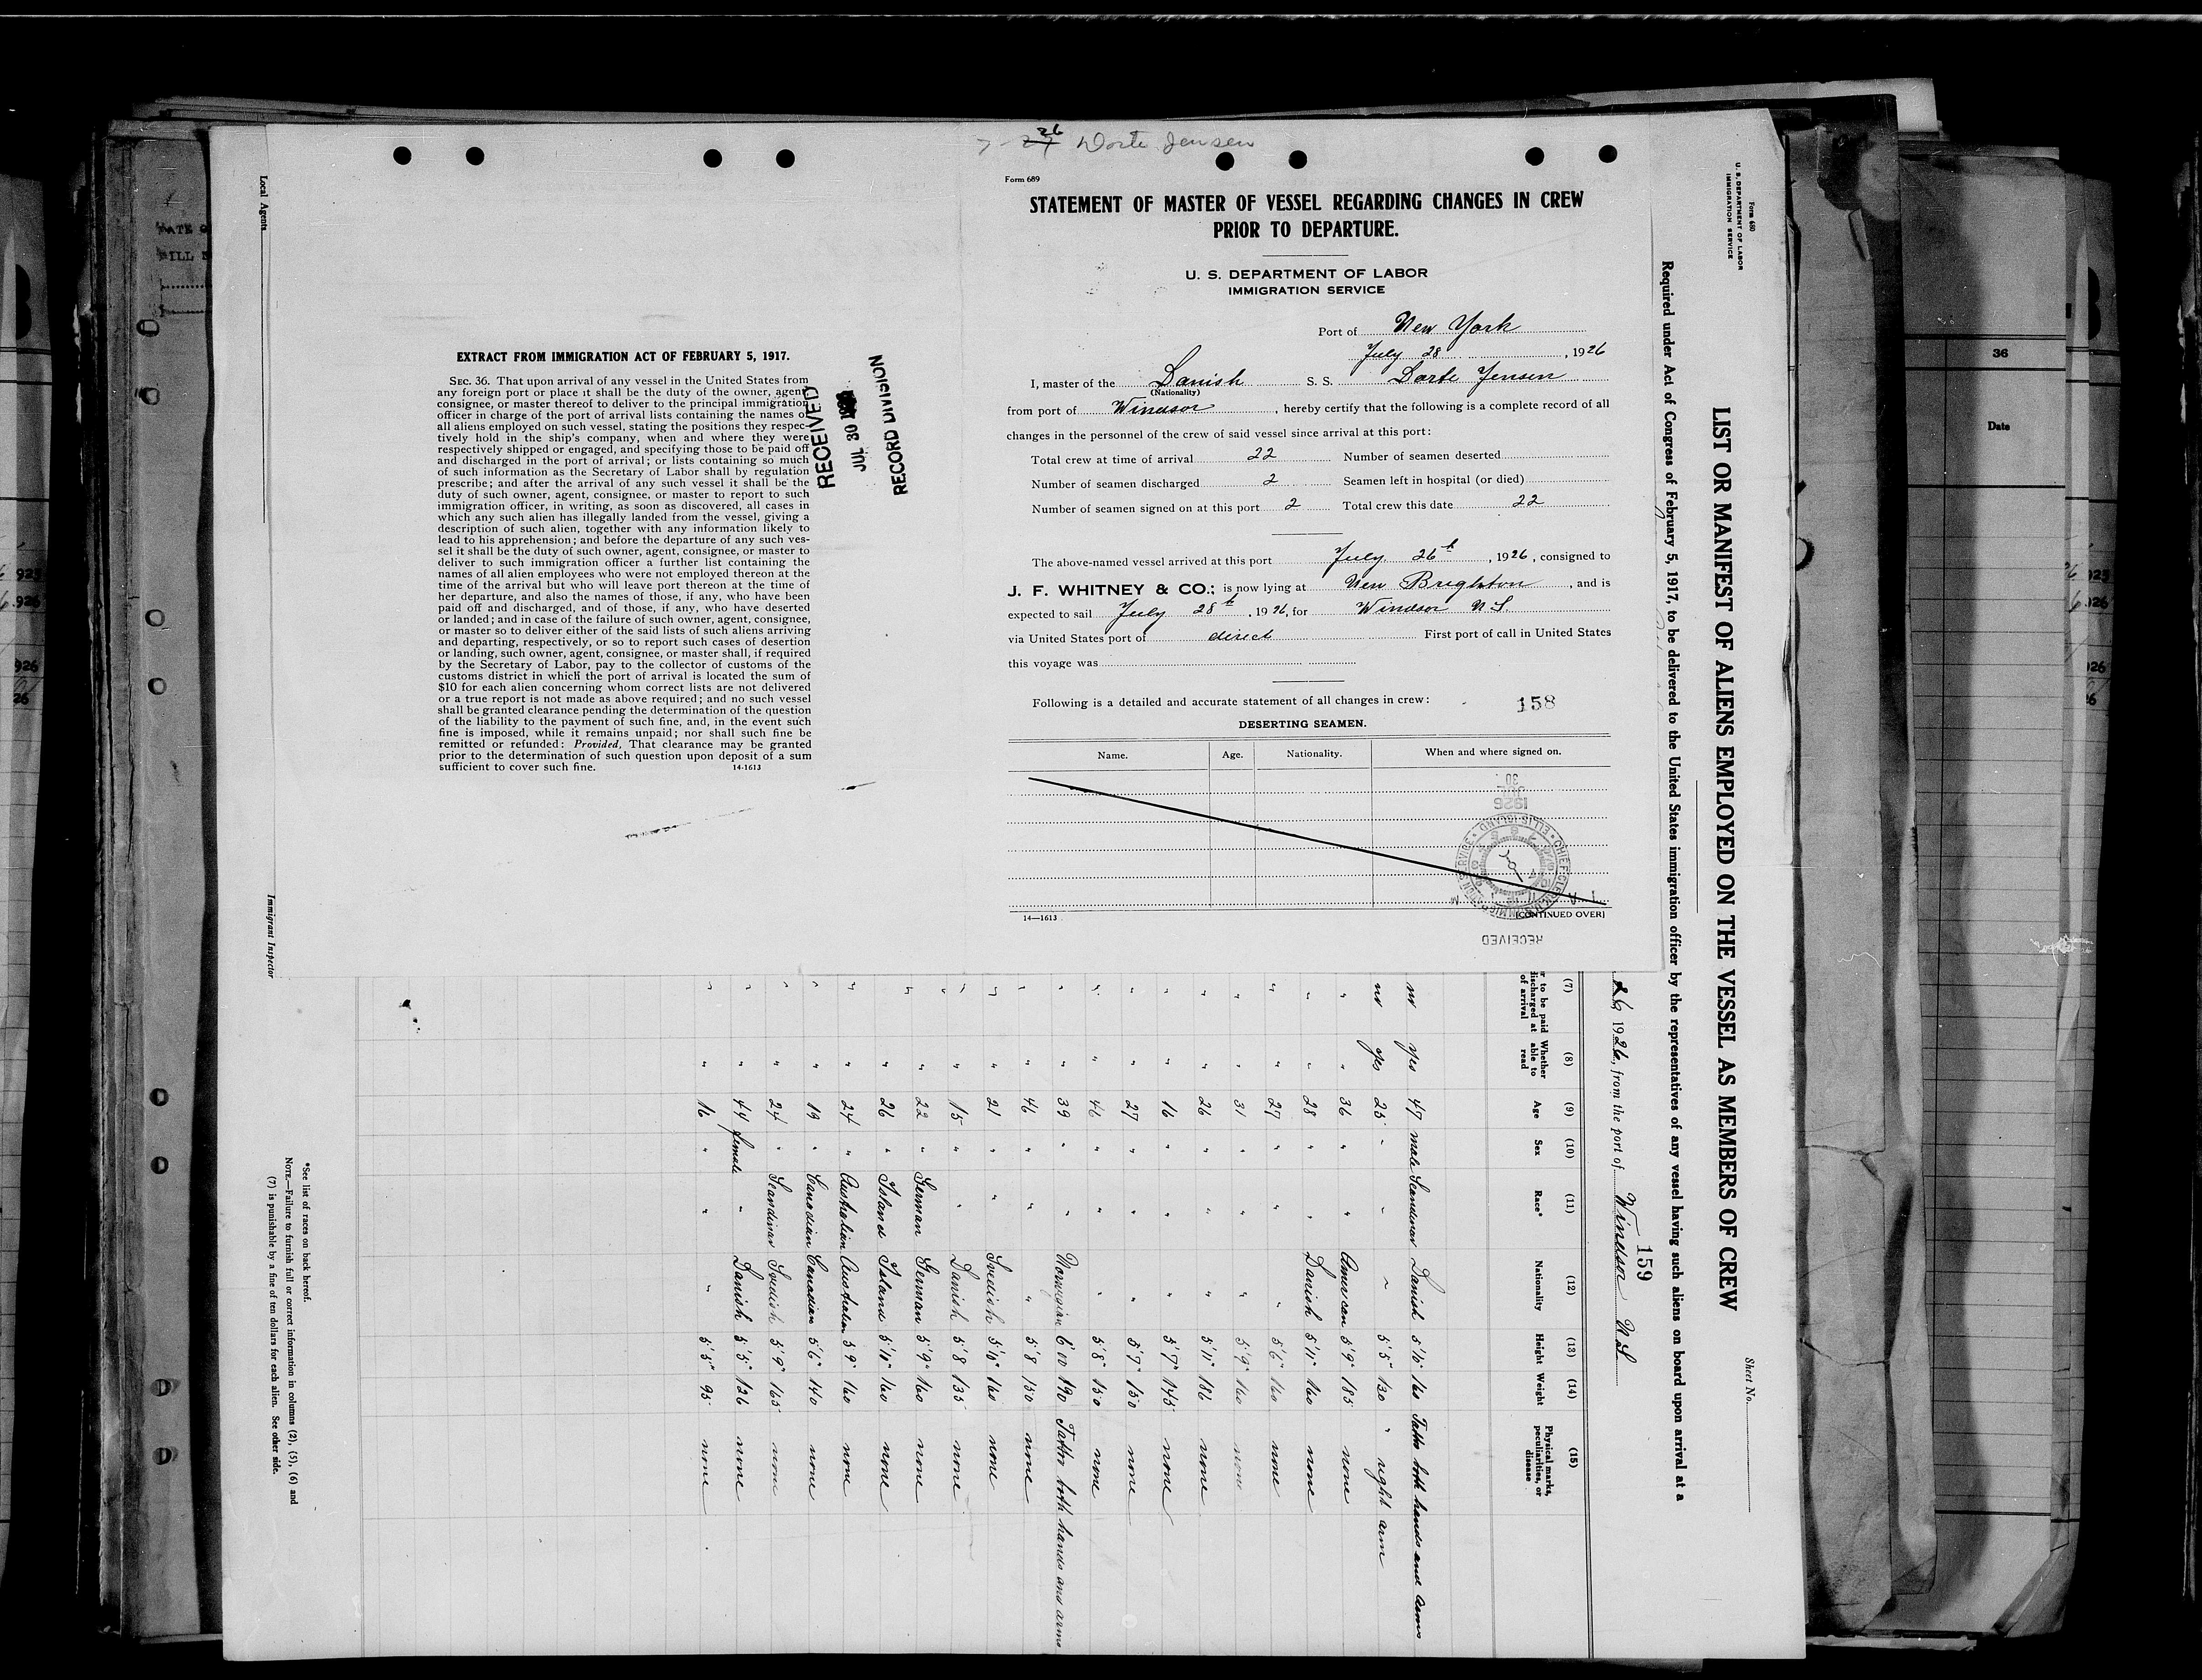 7-26 Dorte Jensen
Form 689
STATEMENT OF MASTER OF VESSEL REGARDING CHANGES IN CREW
PRIOR TO DEPARTURE.
U. S. DEPARTMENT OF LABOR
IMMIGRATION SERVICE
Port of New York
July 28, 1926
I, master of the Danish S. S. Dorte Jensen
(Nationality)
from port of Windsor, hereby certify that the following is a complete record of all
changes in the personnel of the crew of said vessel since arrival at this port:
Total crew at time of arrival 22 Number of seamen deserted
Number of seamen discharged 2 Seamen left in hospital (or died)
Number of seamen signed on at this port 2 Total crew this date 22
The above-named vessel arrived at this port July 26th, 1926, consigned to
J. F. WHITNEY & CO.; is now lying at New Brighton, and is
expected to sail July 28th, 1926, for Windsor N S
via United States port of direct First port of call in United States
this voyage was
Following is a detailed and accurate statement of all changes in crew: 158
DESERTING SEAMEN.
Name. Age. Nationality. When and where signed on.
14—1613 (CONTINUED OVER)
RECEIVED
1926
JUL
30
CHIEF CLERK IMMIGRATION SERVICE ELLIS ISLAND
EXTRACT FROM IMMIGRATION ACT OF FEBRUARY 5, 1917.
SEC. 36. That upon arrival of any vessel in the United States from
any foreign port or place it shall be the duty of the owner, agent,
consignee, or master thereof to deliver to the principal immigration
officer in charge of the port of arrival lists containing the names of
all aliens employed on such vessel, stating the positions they respec-
tively hold in the ship's company, when and where they were
respectively shipped or engaged, and specifying those to be paid off
and discharged in the port of arrival; or lists containing so much
of such information as the Secretary of Labor shall by regulation
prescribe; and after the arrival of any such vessel it shall be the
duty of such owner, agent, consignee, or master to report to such
immigration officer, in writing, as soon as discovered, all cases in
which any such alien has illegally landed from the vessel, giving a
description of such alien, together with any information likely to
lead to his apprehension; and before the departure of any such ves-
sel it shall be the duty of such owner, agent, consignee, or master to
deliver to such immigration officer a further list containing the
names of all alien employees who were not employed thereon at the
time of the arrival but who will leave port thereon at the time of
her departure, and also the names of those, if any, who have been
paid off and discharged, and of those, if any, who have deserted
or landed; and in case of the failure of such owner, agent, consignee,
or master so to deliver either of the said lists of such aliens arriving
and departing, respectively, or so to report such cases of desertion
or landing, such owner, agent, consignee, or master shall, if required
by the Secretary of Labor, pay to the collector of customs of the
customs district in which the port of arrival is located the sum of
$10 for each alien concerning whom correct lists are not delivered
or a true report is not made as above required; and no such vessel
shall be granted clearance pending the determination of the question
of the liability to the payment of such fine, and, in the event such
fine is imposed, while it remains unpaid; nor shall such fine be
remitted or refunded: Provided, That clearance may be granted
prior to the determination of such question upon deposit of a sum
sufficient to cover such fine. 14-1613
RECEIVED
JUL 30
RECORD DIVISION
Form 680
U. S. DEPARTMENT OF LABOR
IMMIGRATION SERVICE
Sheet No.
LIST OR MANIFEST OF ALIENS EMPLOYED ON THE VESSEL AS MEMBERS OF CREW
Required under Act of Congress of February 5, 1917, to be delivered to the United States immigration officer by the representatives of any vessel having such aliens on board upon arrival at a
159
26, 1926, from the port of Windsor N S
(7) (8) (9) (10) (11) (12) (13) (14) (15)
to be paid discharged at of arrival Whether able to read Age Sex Race* Nationality Height Weight Physical marks, peculiarities, or disease
no yes 47 male Scandinav Danish 5'10" 160 Tatto both hands and arms
no yes 25 " " " 5'5" 130 " right arm
" " 36 " " American 5'9" 185 none
" " 28 " " Danish 5'11" 160 none
" " 27 " " " 5'6" 160 none
" " 31 " " " 5'9" 160 none
" " 26 " " " 5'11" 186 none
" " 16 " " " 5'7" 145 none
" " 27 " " " 5'7" 150 none
" " 46 " " " 5'8" 150 none
" " 39 " " Norwegian 6'0 190 Tatto both hands and arms
" " 46 " " " 5'8 150 none
" " 21 " " Svedish 5'10" 160 none
" " 15 " " Danish 5'8 135 none
" " 22 " German German 5'9" 160 none
" " 26 " Island Island 5'10" 160 none
" " 24 " Australian Australian 5'9" 160 none
" " 19 " Canadian Canadian 5'6" 140 none
" " 24 " Scandinav Svedish 5'9" 165 none
" " 44 female " Danish 5'5" 126 none
" " 16 " " " 5'5" 95 none
*See list of races on back hereof.
NOTE.—Failure to furnish full or correct information in columns (2), (5), (6) and
(7) is punishable by a fine of ten dollars for each alien. See other side.
Local Agents
Immigrant Inspector
36
Date